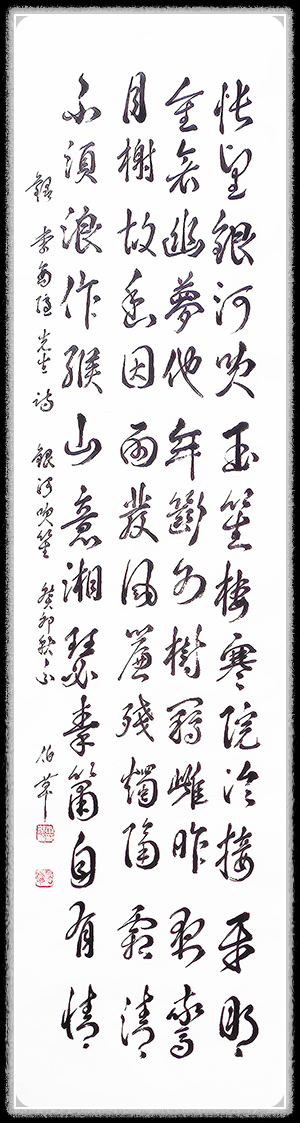 悵望銀河吹玉笙樓寒院冷接平明
重衾幽夢他年斷別樹羈雌昨夜驚
月榭故香因雨發風簾殘燭隔霜清
不須浪作緱山意湘瑟秦簫自有情
錄 李商隱先生詩 銀河吹笙 癸卯秋 伯